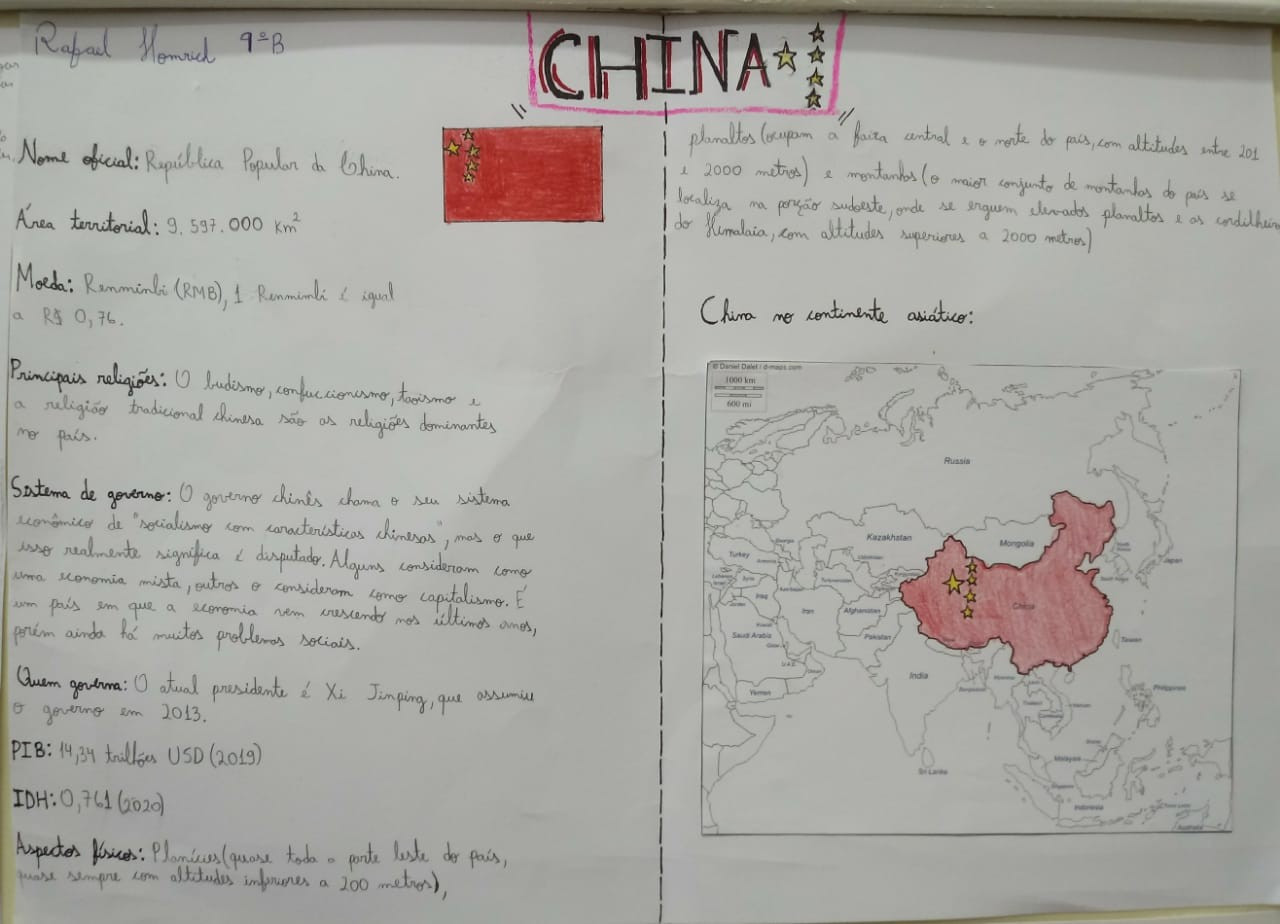 Rafael Homrich 9ºB
CHINA
Nome oficial: República Popular da China.
Área territorial: 9.597.000 Km²
Moeda: Renminbi (RMB), 1 Renmimbi é igual
a R$ 0,76.
Principais religiões: O budismo, confuccionismo, taoismo e
a religião tradicional chinesa são as religiões dominantes
no país.
Sistema de governo: O governo chinês chama o seu sistema
econômico de "socialismo com características chinesas", mas o que
isso realmente significa é disputado. Alguns consideram como
uma economia mista, outros o consideram como capitalismo. É
um país em que a economia vem crescendo nos últimos anos,
porém ainda há muitos problemas sociais.
Quem governa: O atual presidente é Xi Jinping, que assumiu
o governo em 2013.
PIB: 14,34 trilhões USD (2019)
IDH: 0,761 (2020)
Aspectos físicos: Planícies (quase toda a parte leste do país,
quase sempre com altitudes inferiores a 200 metros),
planaltos (ocupam a faixa central e o norte do país, com altitudes entre 201
e 2000 metros) e montanhas (o maior conjunto de montanhas do país se
localiza na porção sudoeste, onde se erguem elevados planaltos e as cordilheira
do Himalaia, com altitudes superiores a 2000 metros)
China no continente asiático:
© Daniel Dalet / d-maps.com
1000 km
600 mi
Russia
Kazakhstan
Mongolia
Turkey
Georgia
Uzbekistan
Turkmenistan
Japan
Syria
Iraq
Iran
Afghanistan
China
Jordan
Kuwait
Pakistan
Saudi Arabia
Qatar
U.A.E.
Taiwan
India
Yemen
Philippines
Cambodia
Sri Lanka
Malaysia
Indonesia
Australia